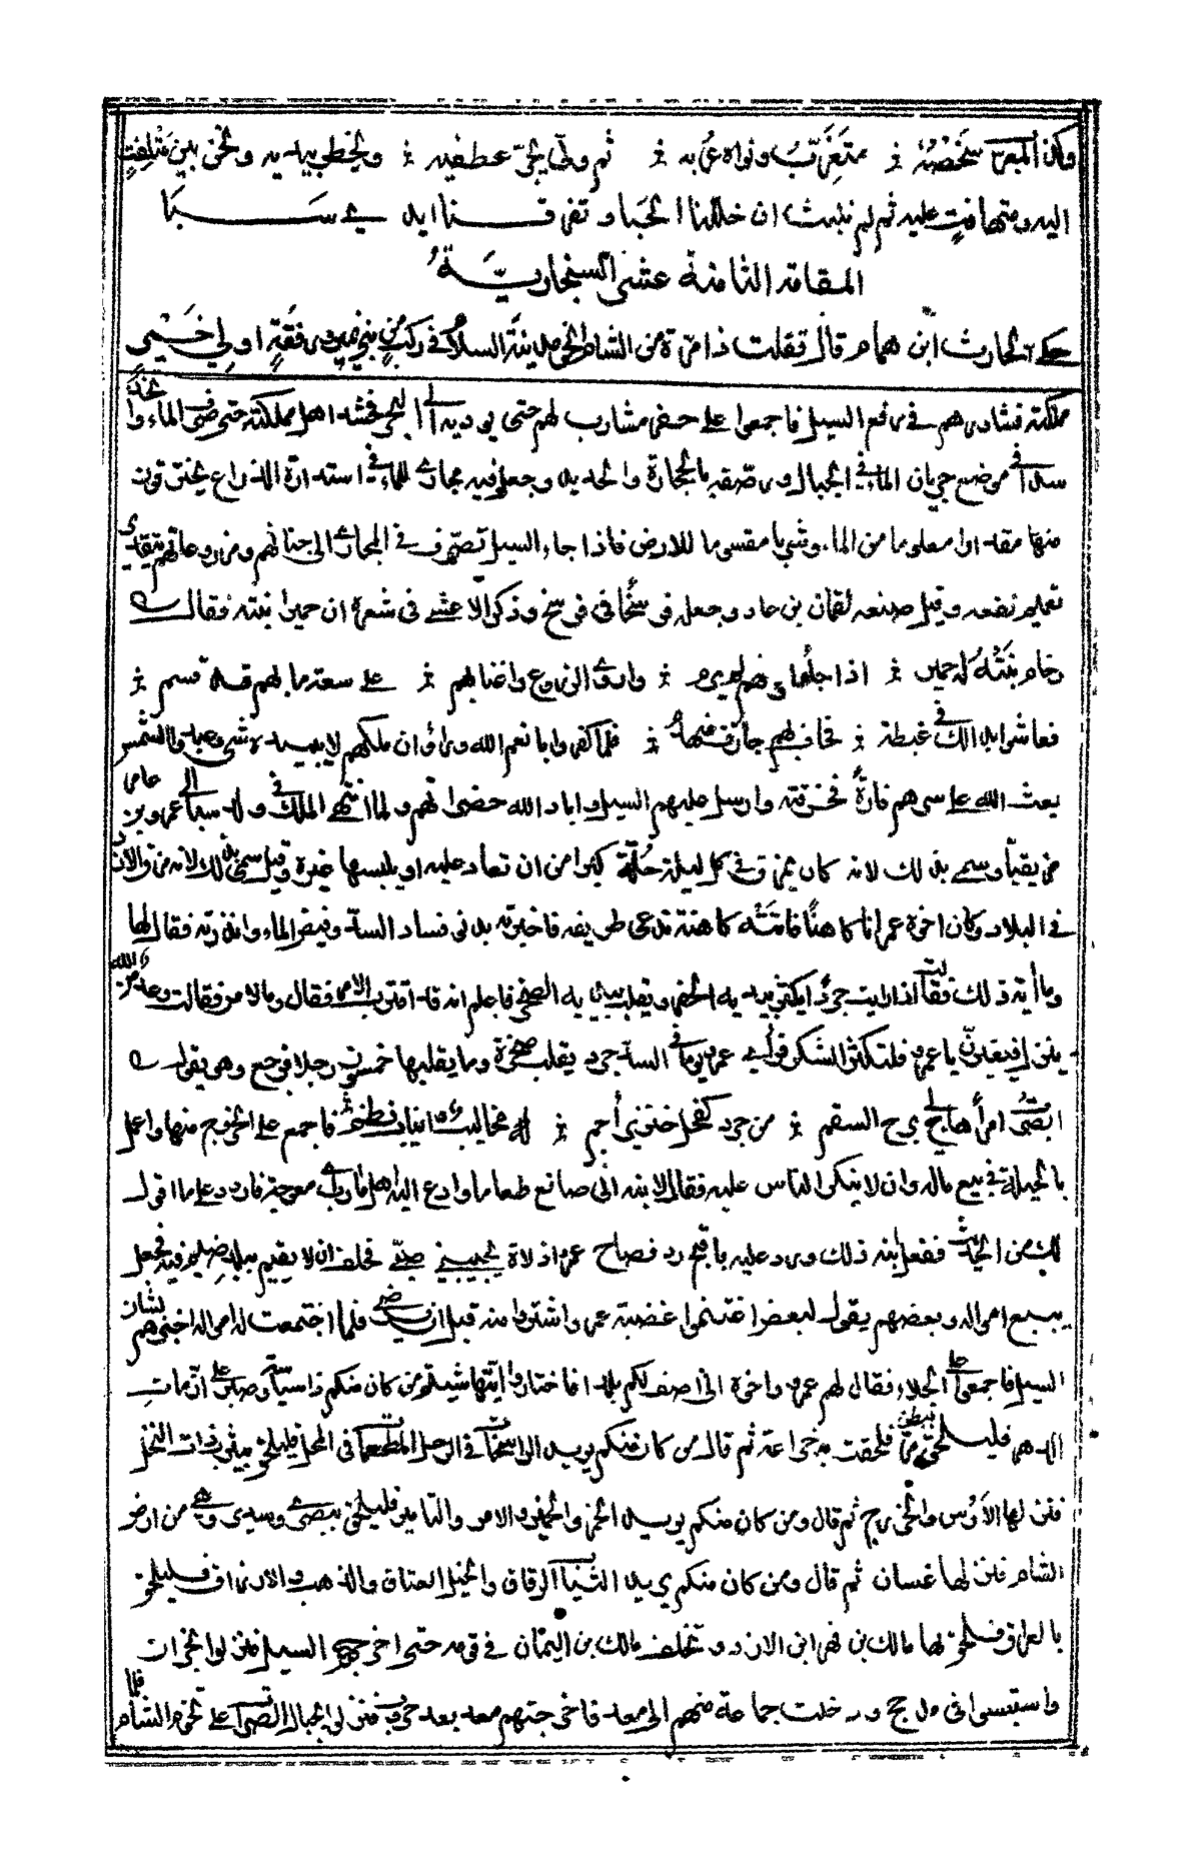 وكان المبرّز شخصُهُ ؞ متغرّبٌ ونواه غُربه ؞ ثم ولّى يجرّ عطفيه ؞ ويخطر بيديه ونحن بين متلفتٍ
اليه ومتهافتٍ عليه ثم لم نلبث ان حللنا الحبا وتفرقنا ايدي سبا
المقامة الثامنة عشر السنجاريّةُ
حكى الحارث ابن همام قال قفلت ذا مرّة من الشام انحو مدينة السلام في ركبٍ من بني نمير ورفقةٍ اولي خيرٍ
مملكته فشاورهم في دفع السيل فاجمعوا على حفر مشارب لهم حتى يوديه الى البحر فحشد اهل مملكته حتى صرف الماء واتخذ
سدا في موضع جريان الماء في الجبال ورصّفه بالحجارة والحديد وجعل فيه مجاري للماء في استدارة الذراع يخترقون
منها مقدارا معلوما من الماء وشربا مقسوما للارض فاذا جاء السيل تصرّف في المجاري الى جناتهم ومزدرعاتهم بتقدير
تعليم نفعه وقيل صنعه لقمان بن عاد وجعله فرسخا في فرسخ وذكر الاعشى في شعره ان حمير ابنته فقال
رخام بنته له حمير ؞ اذا جاءها ماؤهم لم يرم ؞ واروى الزروع واعنابهم ؞ على سعة ما بهم قد قسم ؞
فعاشوا بذلك في غبطة ؞ فخاف بهم جارف منهدم ؞ فلما كفروا بانعم الله ورأوا ان ملكهم لا يبيده شي وعبدوا الشمس
بعث الله على سدهم فارةً فخرقته وارسل عليهم السيل واباد الله خضراءهم ولما انتهى الملك في ولد سبا الى عمرو بن عامر
مزيقيا وسمي بذلك لانه كان يمزق في كل ليلة حلّة كبرا من ان تعاد عليه او يلبسها غيره وقيل سمي بذلك لانه مزق الازد
في البلاد وكان اخوه عمران كاهنًا فاتته كاهنة تدعى طريفه فاخبرته بدنو فساد السد وفيض الماء وانذرته فقال لها
وما آية ذلك فقالت اذا رايت جرذا يكثر بيديه الحفر ويقلب بيديه الصخر فاعلم انه قد اقترب الامر فقال وما الامر فقالت وعد من الله
ينزل فبغيرك يا عمرو فلتكن الشكر فرأى عمرو يوما في السد جرذ يقلب صخرة وما يقلبها خمسون رجلا فرجع وهو يقول
ابصرتُ امرًا هاج لي برح السقم ؞ من جرذ كفحل خنزير أجم ؞ له مخاليب وانياب قطم فاجمع على الخروج منها واعمل
بالحيلة في بيع ماله وان لا ينكر الناس عليه فقال لابنه اني صانع طعاما وادع اليه اهل مارب معوجة فاردد علي ما اقول
لك من الحديث ففعل ابنه ذلك ورد عليه باقبح رد فصاح عمرو اذلاه يجيبني صبي فحلف ان لا يقيم ببلد ضيم فيه فجعل
يبيع امواله وبعضهم يقول لبعض اغتنموا غضبة عمرو واشتروا منه قبل ان يرضى فلما اجتمعت له امواله اخبرهم بشان
السيل فاجمعوا على الجلاء فقال لهم عمرو واخوه اني اصف لكم بلدا فاختاروا ايتها شيتم من كان منكم ذا سياسة وصبر على ازمات
الدهر فليلحق ببطن مر فلحقت به خزاعة ثم قال من كان منكم يريد الراسخات في الوحل المطعمات في المحل فليلحق بيثرب ذات النخل
فنزلها الأَوس والخزرج ثم قال ومن كان منكم يريد الخمر والخمير والامر والتامير فليلحق ببصرى وسدير وهي من ارض
الشام فنزلها غسان ثم قال ومن كان منكم يريد الثياب الرقاق والخيل العتاق والذهب والاوراق فليلحق
بالعراق فلحق بها مالك بن فهم ابن الازد وتخلف مالك بن اليمان في قومه حتى اخرجهم السيل فنزلوا نجران
واستبسوا في مذحج ودخلت جماعة منهم الى معد فاخرجتهم معد بعد حروب فنزلوا بجبال السراة على تخوم الشام فلما